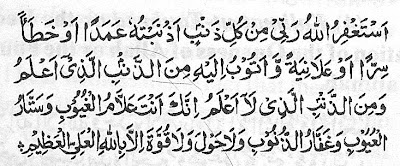 اَسْتَغْفِرُ اللهَ رَبِّيْ مِنْ كُلِّ ذَنْۢبٍ اَذْنَبْتُهٗ عَمَدًا اَوْ خَطَأً
سِرًّا اَوْ عَلَانِيَةً وَّاَتُوْبُ اِلَيْهِ مِنَ الذَّنْۢبِ الَّذِیْ اَعْلَمُ
وَمِنَ الذَّنْۢبِ الَّذِیْ لَآ اَعْلَمُ اِنَّكَ اَنْتَ عَلَّامُ الْغُيُوْبِ وَسَتَّارُ
الْعُيُوْبِ وَغَفَّارُ الذُّنُوْبِ وَلَا حَوْلَ وَلَا قُوَّةَ اِلَّا بِاللهِ الْعَلِیِّ الْعَظِيْمِ